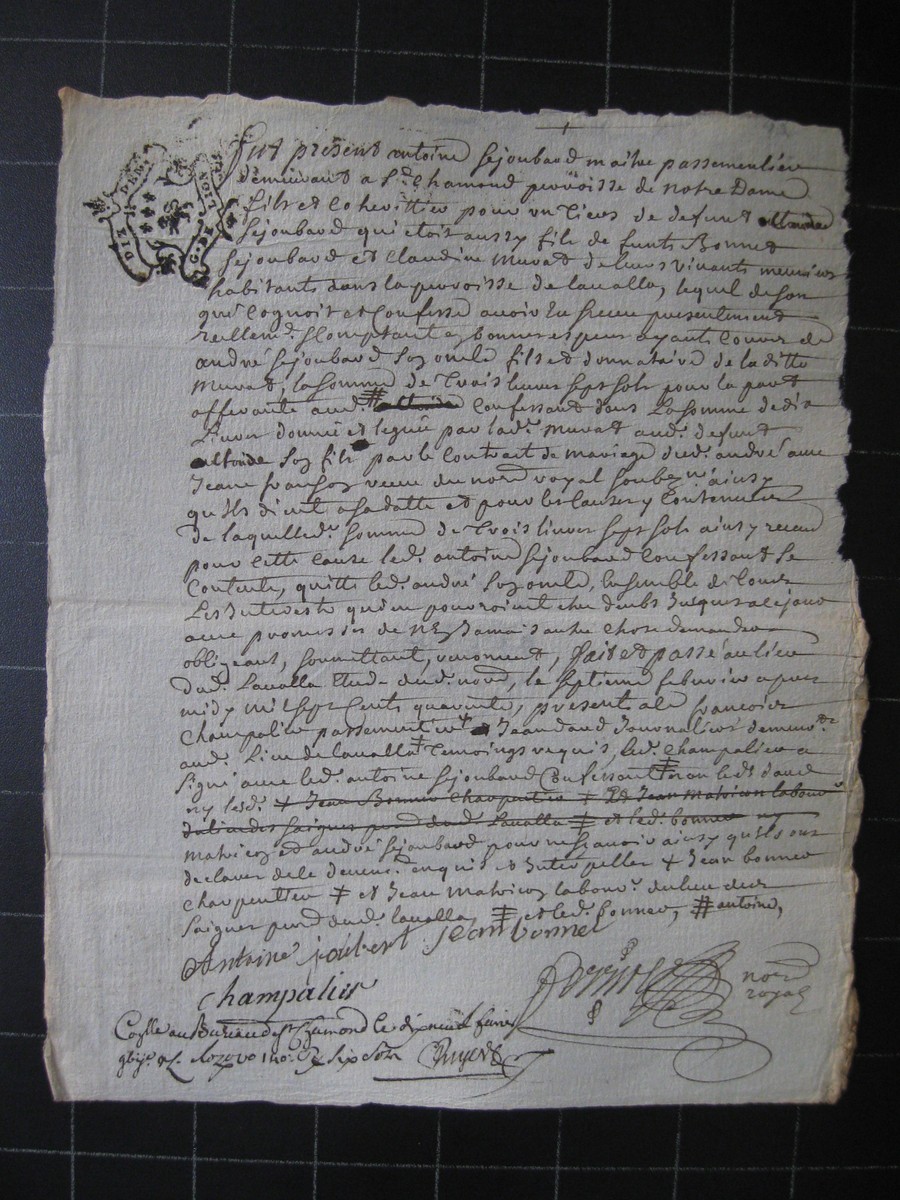 G. DE LION DIX DENI
Fut présent antoine sejoubard maître passementier
demeurant a St Chamond parroisse de notre Dame
fils et coherittier pour un tiers de defunt
sejoubard qui étoit aussy fils de funts Bonnet
sejoubard et Claudine murat de leurs vivants
habitants dans la parroisse de lavalla, lequel de son
gré Cognoit et confesse avoir eu et receu presentement
reellemt. Comptant en bonnes especes ayants Cours de
andré sejoubard son oncle fils et donnataire de la ditte
murat, la somme de trois livres sept sols pour la part
afferante aud. # Confessant dans la somme de dix
livres donnée et leguée par lad. murat aud. defunt
son fils par le Contract de mariage dud. andré avec
Jeane receu du nore royal soubzné ainsy
qu'ils disent a sa datte et pour les causes y Contenues
de laquelle d. somme de trois livres sept sols ainsy receue
pour cette cause led. antoine sejoubard Confessant se
Contente, quitte led. andré son oncle, ensemble de tous
les interests qu'en pourroient etre deubs jusques a ce jour
avec promesses de ne jamais autre chose demander
obligeant, soumettant, renonceant, fait et passé au lieu
dud. Lavalla Etude dud. nore, le septieme febvrier apres
midy mil sept cents quarante, present a ce françois
Champalier passementier Jean journalier demeurt.
aud. Lieu de lavalla temoings requis, led. Champalier a
signé avec led. antoine sejoubard Confessant non led.
ny lesd. + Jean Bonnet Charpentier ‡ Et Jean matricon labour.
du lieu des saignes prsse dud. Lavalla ‡ et led. bonnet ny
matricon et andré sejoubard pour ne sçavoir ainsy qu'ils ont
declaré de ce deuemt. enquis et interpellés + Jean bonnet
charpentier ‡ et Jean matricon labour. du lieu des
saignes prsse dud. lavalla, ‡ et led. bonnet, # antoine,
Antoine joubert jean bonnet
Champalier
nore
royal
Conllé au Bureau de St Chamond le dixneuf fevrier
six sols